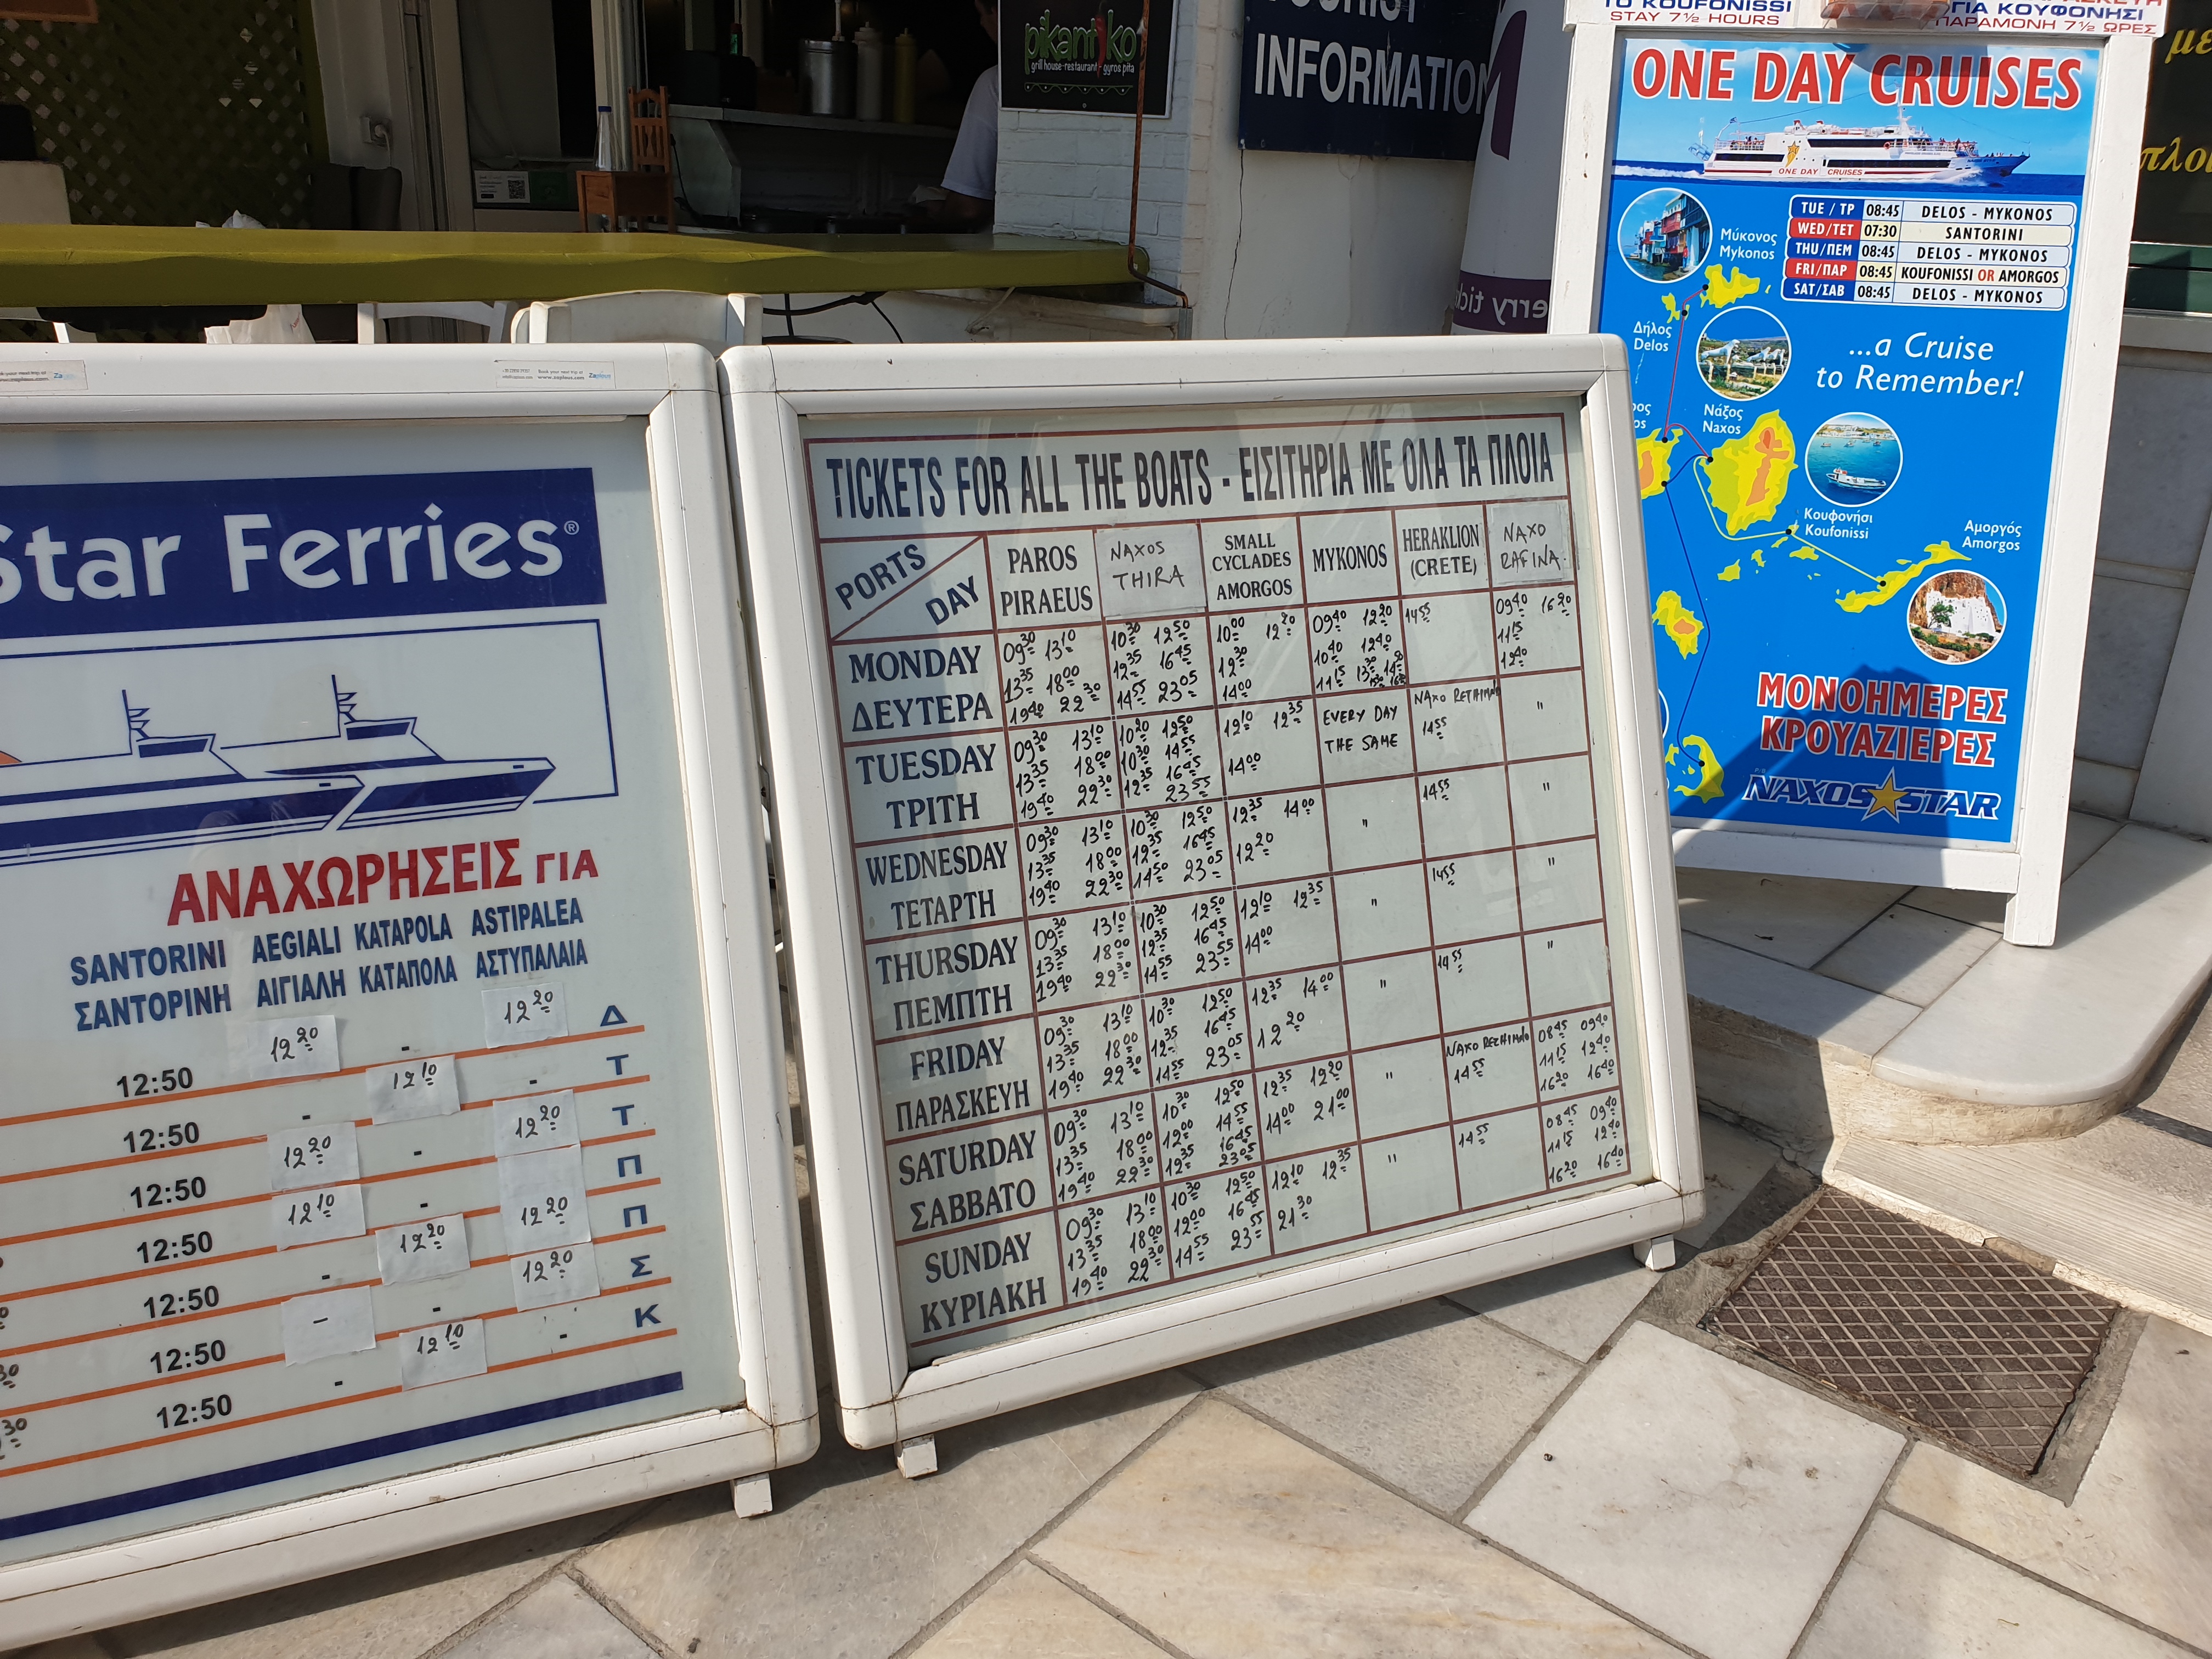 pikantiko
grill house-restaurant-gyros pita
INFORMATION
TO KOUFONISSI
STAY 7½ HOURS
ΓΙΑ ΚΟΥΦΟΝΗΣΙ
ΠΑΡΑΜΟΝΗ 7½ ΩΡΕΣ
ONE DAY CRUISES
ONE DAY CRUISES
TUE / ΤΡ 08:45 DELOS - MYKONOS
WED/ΤΕΤ 07:30 SANTORINI
THU/ΠΕΜ 08:45 DELOS - MYKONOS
FRI/ΠΑΡ 08:45 KOUFONISSI OR AMORGOS
SAT/ΣΑΒ 08:45 DELOS - MYKONOS
Μύκονος
Mykonos
Δήλος
Delos
...a Cruise
to Remember!
Νάξος
Naxos
Κουφονήσι
Koufonissi
Αμοργός
Amorgos
ΜΟΝΟΗΜΕΡΕΣ
ΚΡΟΥΑΖΙΕΡΕΣ
NAXOS STAR
Star Ferries®
ΑΝΑΧΩΡΗΣΕΙΣ ΓΙΑ
SANTORINI AEGIALI KATAPOLA ASTIPALEA
ΣΑΝΤΟΡΙΝΗ ΑΙΓΙΑΛΗ ΚΑΤΑΠΟΛΑ ΑΣΤΥΠΑΛΑΙΑ
12:50 12 20 - 12 20 Δ
12:50 - 12 10 - Τ
12:50 12 20 - 12 20 Τ
12:50 12 10 - Π
12:50 - 12 20 12 20 Π
12:50 - - 12 20 Σ
12:50 - 12 10 - Κ
TICKETS FOR ALL THE BOATS - ΕΙΣΙΤΗΡΙΑ ΜΕ ΟΛΑ ΤΑ ΠΛΟΙΑ
PORTS
DAY
PAROS
PIRAEUS
NAXOS
THIRA
SMALL
CYCLADES
AMORGOS
MYKONOS
HERAKLION
(CRETE)
NAXO
RAFINA
MONDAY
ΔΕΥΤΕΡΑ
09 30 13 10
13 35 18 00
19 40 22 30
10 30 12 50
12 35 16 45
14 55 23 05
10 00 12 20
12 30
14 00
09 40 12 20
10 40 12 40
11 15 13 30
14 55
09 40 16 20
11 15
12 40
TUESDAY
ΤΡΙΤΗ
09 30 13 10
13 35 18 00
19 40 22 30
10 20 12 50
10 30 14 55
12 35 16 45
23 55
12 10 12 35
14 00
EVERY DAY
THE SAME
NAXO RETHIMNO
14 55
"
WEDNESDAY
ΤΕΤΑΡΤΗ
09 30 13 10
13 35 18 00
19 40 22 30
10 30 12 50
12 35 16 45
14 50 23 05
12 35 14 00
12 20
"
14 55
"
THURSDAY
ΠΕΜΠΤΗ
09 30 13 10
13 35 18 00
19 40 22 30
10 30 12 50
12 35 16 45
14 55 23 55
12 10 12 35
14 00
"
14 55
"
FRIDAY
ΠΑΡΑΣΚΕΥΗ
09 30 13 10
13 35 18 00
19 40 22 30
10 30 12 50
12 35 16 45
14 55 23 05
12 35 14 00
12 20
"
14 55
"
SATURDAY
ΣΑΒΒΑΤΟ
09 30 13 10
13 35 18 00
19 40 22 30
10 30 12 50
12 00 14 55
12 35 16 45
23 05
12 35 12 20
14 00 21 00
"
NAXO RETHIMNO
14 55
08 45 09 40
11 15 12 40
16 20 16 40
SUNDAY
ΚΥΡΙΑΚΗ
09 30 13 10
13 35 18 00
19 40 22 30
10 30 12 50
12 00 16 45
14 55 23 55
12 10 12 35
21 30
"
14 55
08 45 09 40
11 15 12 40
16 20 16 40